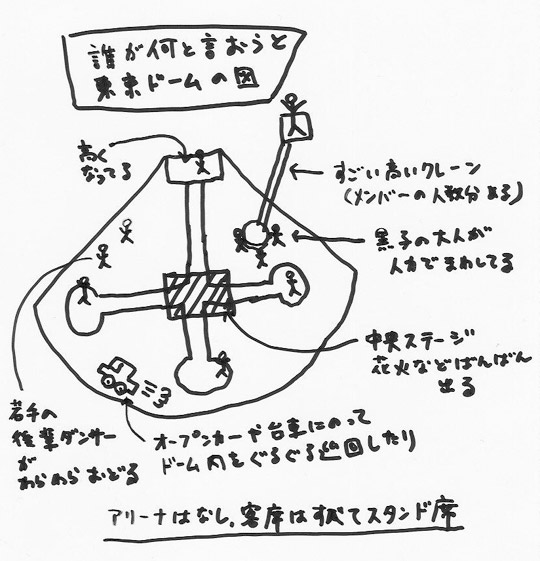 誰が何と言おうと
東京ドームの図
高く
なってる
すごい高いクレーン
(メンバーの人数分ある)
黒子の大人が
人力でまわしてる
中央ステージ
花火などばんばん
出る
若手の
後輩ダンサー
が
わらわらおどる
オープンカーや台車にのって
ドーム内をぐるぐる巡回したり
アリーナはなし。客席はすべてスタンド席